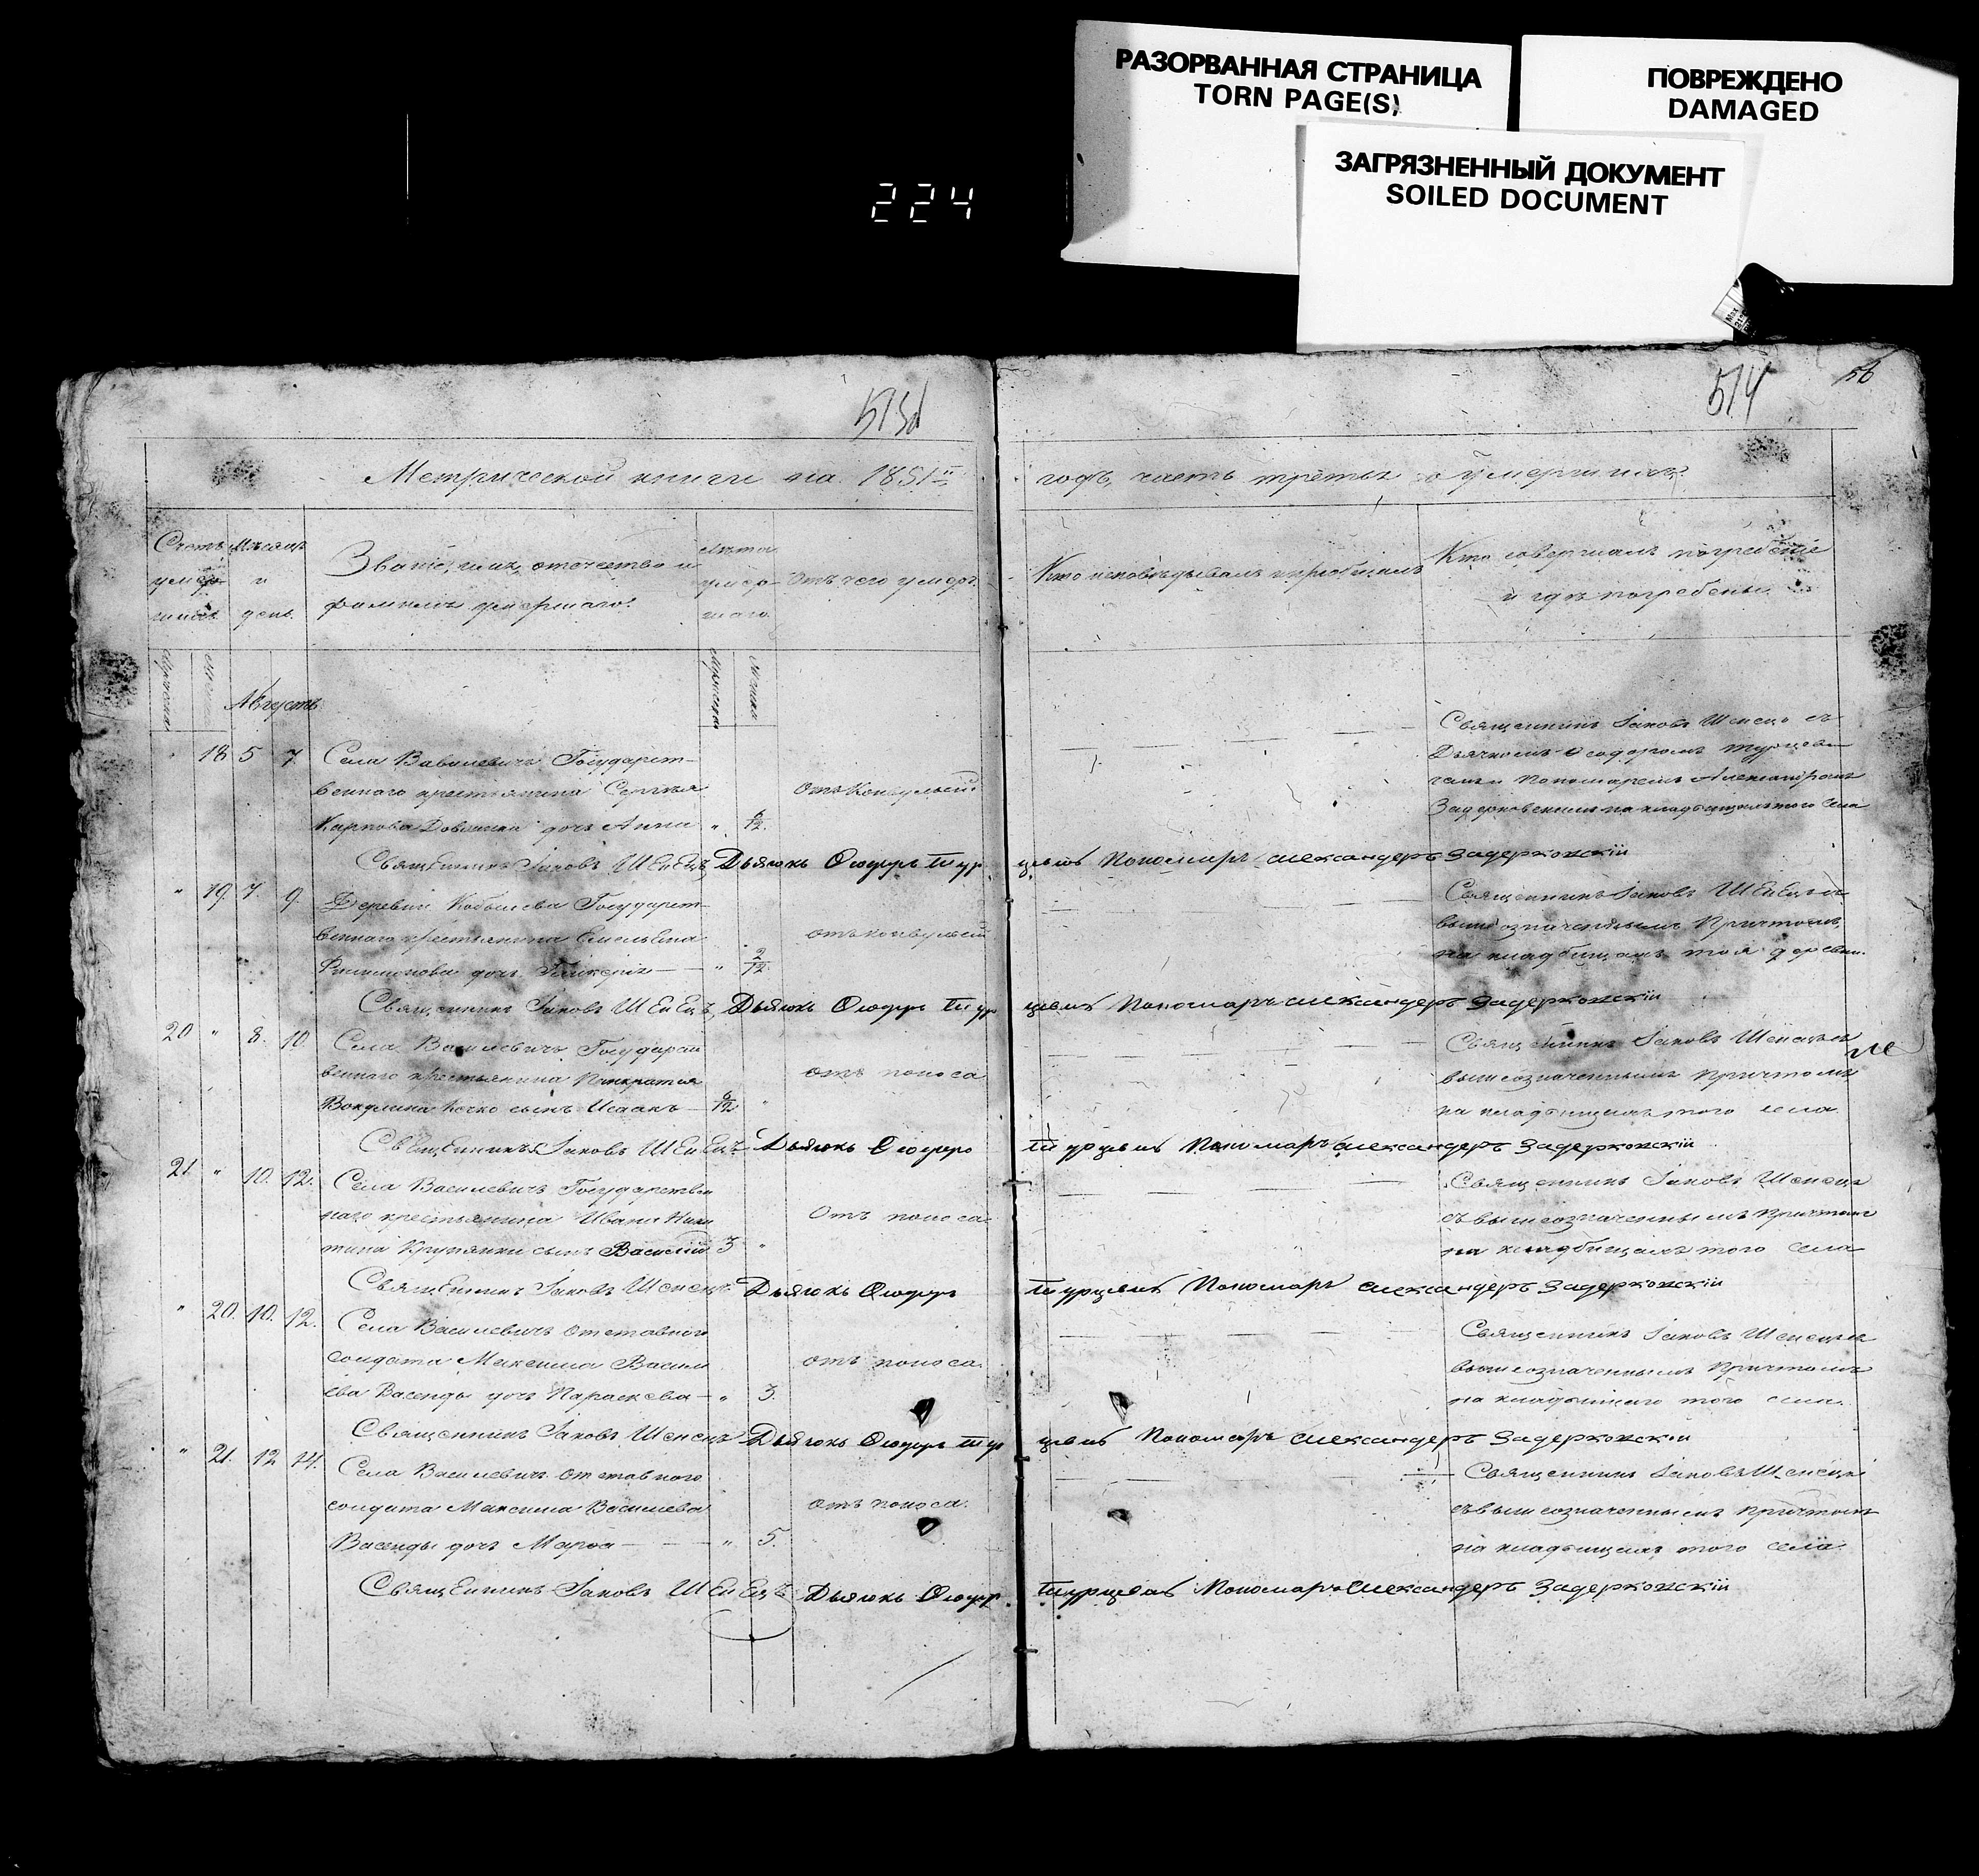 РАЗОРВАННАЯ СТРАНИЦА
TORN PAGE(S)
ПОВРЕЖДЕНО
DAMAGED
ЗАГРЯЗНЕННЫЙ ДОКУМЕНТ
SOILED DOCUMENT
224
514
56
Метрической книги на 1851й
годъ, часть третья о умершихъ.
Счетъ умершихъ
Мѣсяцъ и день.
Званіе, имя, отечество и
фамилія умершаго.
Лѣта умершаго.
Отъ чего умеръ.
Кто исповѣдывалъ и пріобщалъ
Кто совершалъ погребеніе
и гдѣ погребены.
Августъ
" 18 5 7.
Села Василевичъ Государст-
веннаго крестьянина Сергѣя
Карпова дочь Анна " 6/12.
Отъ Конвульсій
Священникъ Іаковъ Шенецъ съ
Дьячкомъ Ѳеодоромъ Турцеви-
чемъ и Пономаремъ Александромъ
Задерковскимъ на кладбищѣ того села
Священникъ Іаковъ Шенецъ, Дьячокъ Ѳеодоръ Турцевичъ Пономарь Александеръ Задерковскій
" 19. 7. 9.
Деревни Государст-
веннаго крестьянина Емельяна
Филимонова дочь Гликерія — " 2/12.
отъ конвульсій
Священникъ Іаковъ Шенецъ съ
вышеозначеннымъ Причтомъ,
на кладбищѣ той деревни.
Священникъ Іаковъ Шенецъ, Дьячокъ Ѳеодоръ Турцевичъ Пономарь Александеръ Задерковскій
20 " 8. 10.
Села Василевичъ Государст
веннаго крестьянина Панкратія
сынъ Исаакъ — 6/12 "
отъ поноса
Священникъ Іаковъ Шенецъ съ
вышеозначеннымъ Причтомъ
на кладбищѣ того села.
Священникъ Іаковъ Шенецъ Дьячокъ Ѳеодоръ Турцевичъ Пономарь Александеръ Задерковскій
21. " 10. 12.
Села Василевичъ Государствен
наго крестьянина Ивана Ники
тина Крупянки сынъ Василій 3 "
Отъ поноса
Священникъ Іаковъ Шенецъ
съ вышеозначеннымъ Причтомъ
на кладбищѣ того села
Священникъ Іаковъ Шенецъ Дьячокъ Ѳеодоръ Турцевичъ Пономарь Александеръ Задерковскій
" 20. 10. 12.
Села Василевичъ отставного
солдата Максима Васил
ева Васенды дочь Параскева — " 3.
отъ поноса.
Священникъ Іаковъ Шенецъ съ
вышеозначеннымъ Причтомъ
на кладбищѣ того села.
Священникъ Іаковъ Шенецъ Дьячокъ Ѳеодоръ Турцевичъ Пономарь Александеръ Задерковскій
" 21. 12 14.
Села Василевичъ отставного
солдата Максима Василева
Васенды дочь Марѳа — " 5.
отъ поноса.
Священникъ Іаковъ Шенецъ
съ вышеозначеннымъ Причтомъ
на кладбищѣ того села.
Священникъ Іаковъ Шенецъ Дьячокъ Ѳеодоръ Турцевичъ Пономарь Александеръ Задерковскій